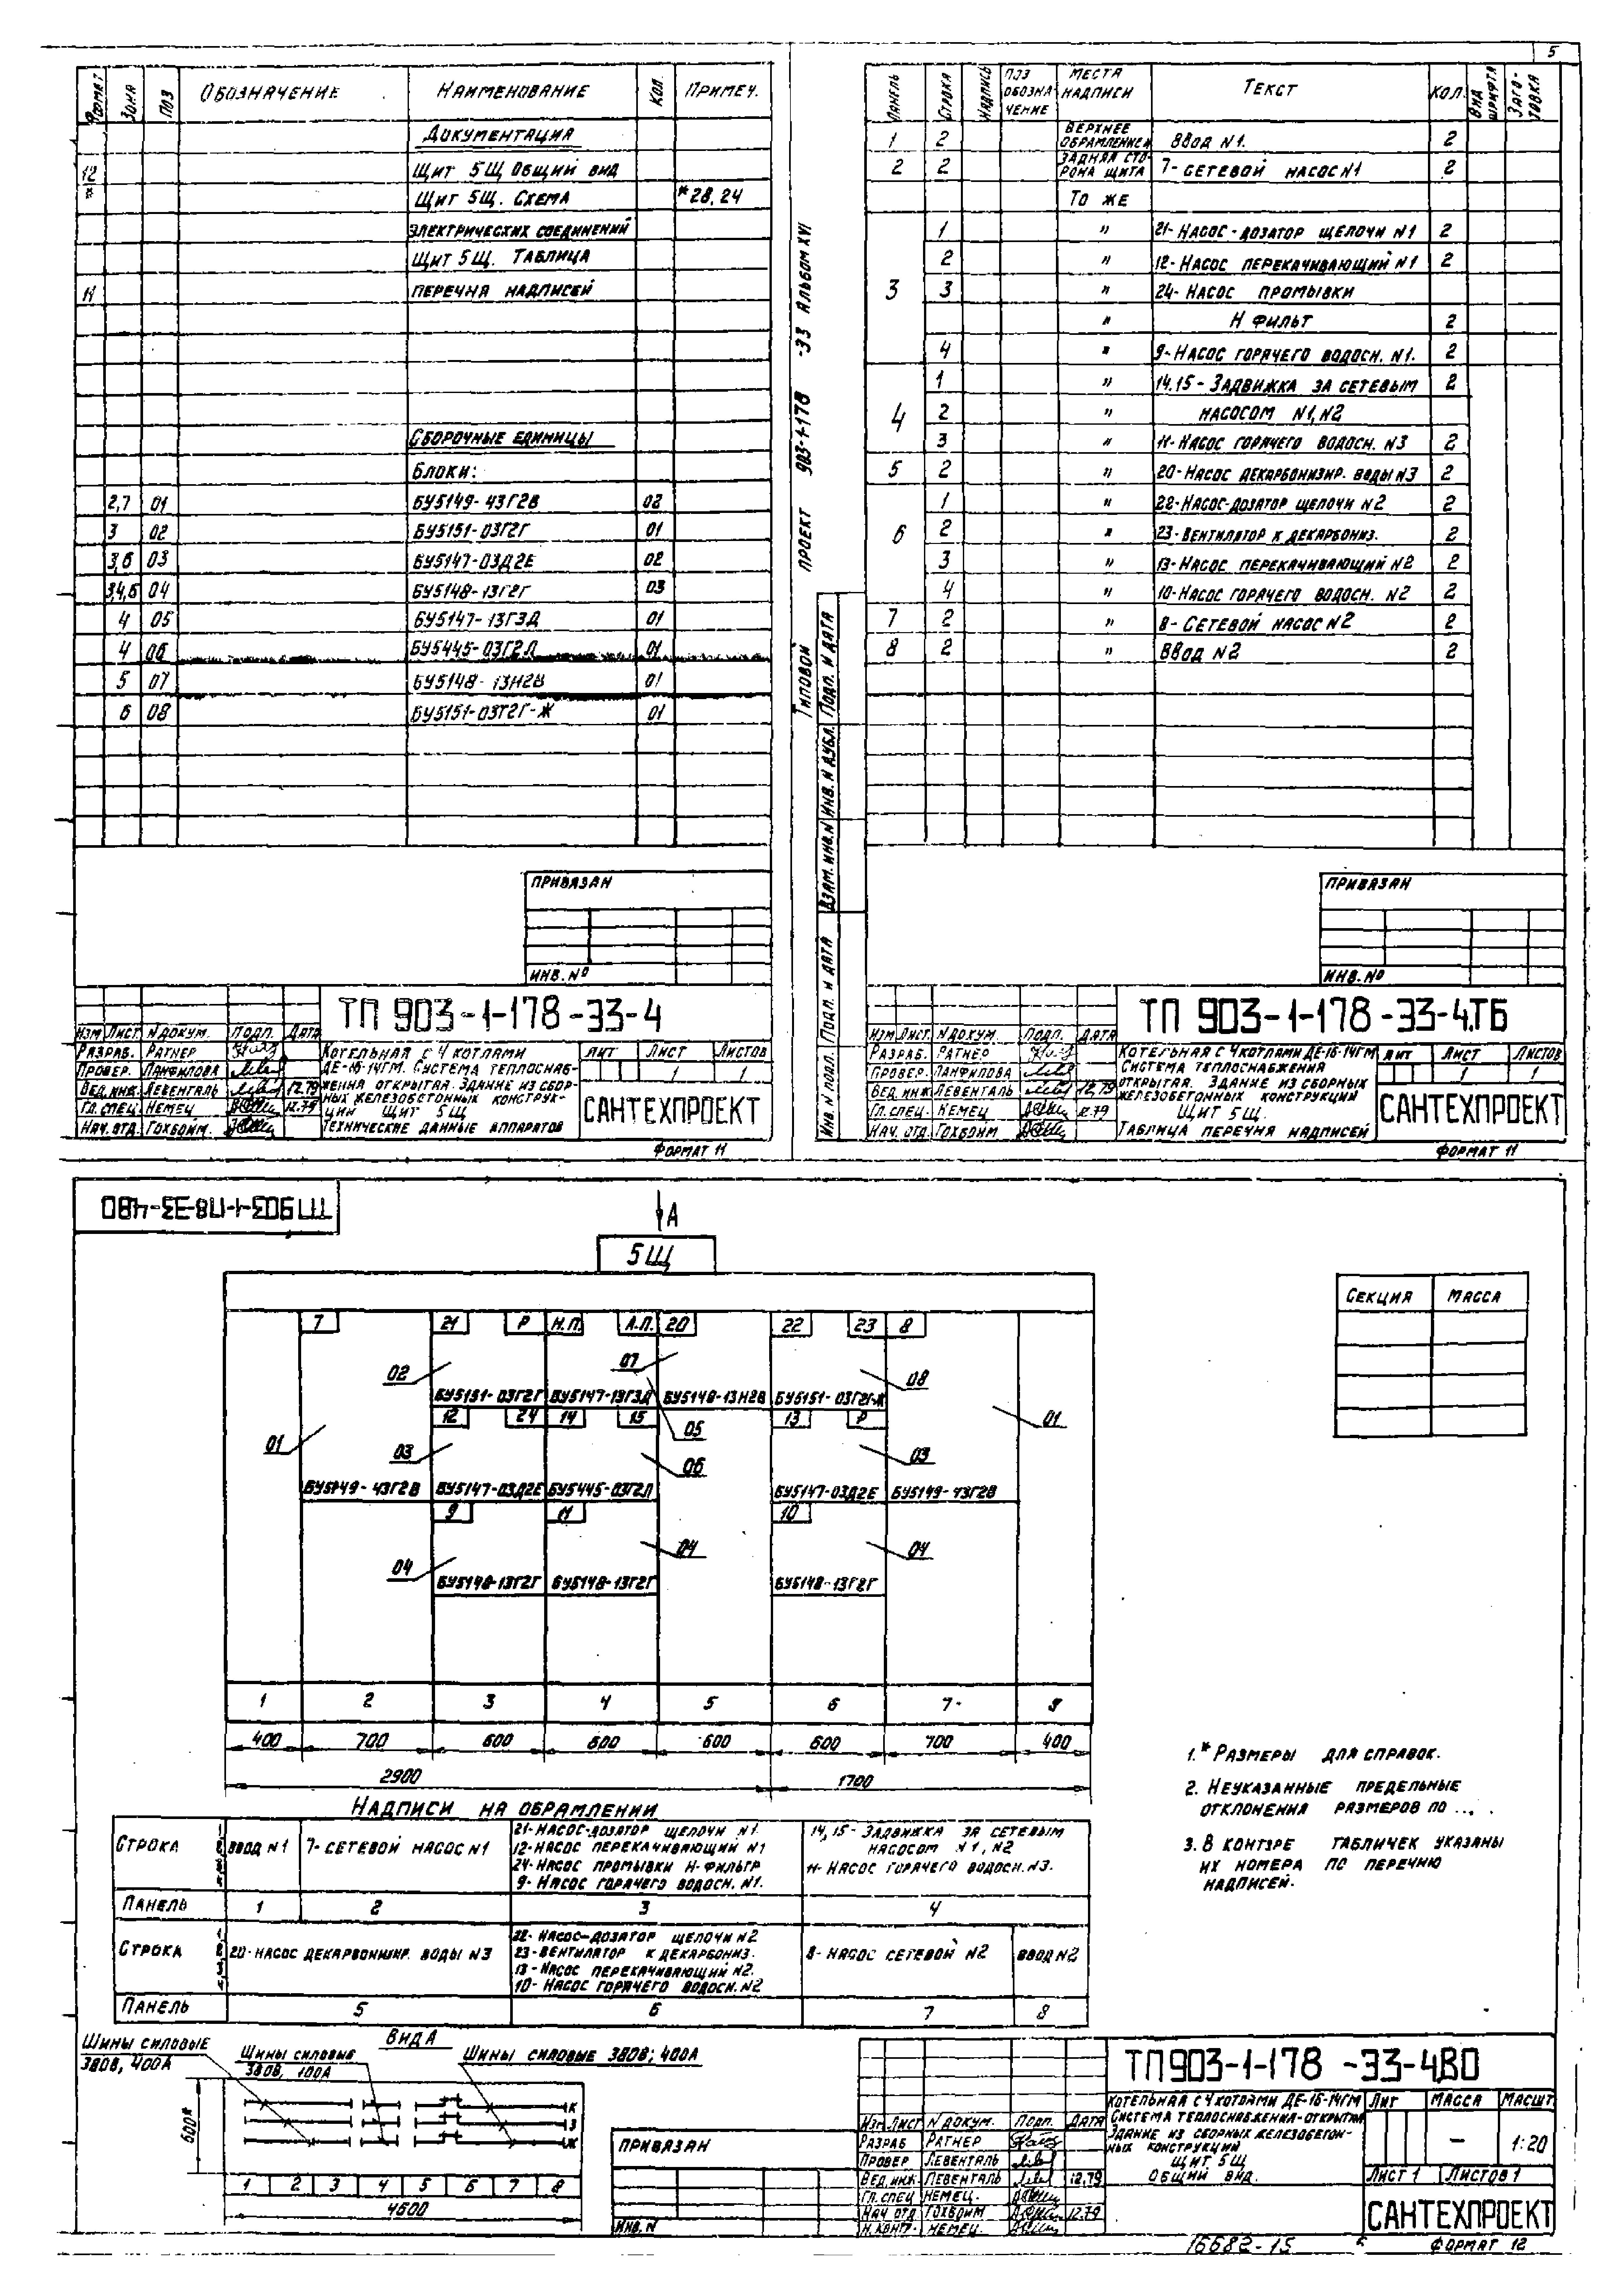 5
Формат Зона Поз Обозначение Наименование Кол. Примеч.
Документация
12 Щит 5Щ Общий вид
* Щит 5Щ. Схема *28, 24
электрических соединений
Щит 5Щ. Таблица
11 перечня надписей
Сборочные единицы
Блоки:
2,7 01 БУ5149-43Г2В 02
3 02 БУ5151-03Г2Г 01
3,6 03 БУ5147-03Д2Е 02
3,4,6 04 БУ5148-13Г2Г 03
4 05 БУ5147-13Г3Д 01
4 06 БУ5445-03Г2Л 01
5 07 БУ5148-13Н2В 01
6 08 БУ5151-03Г2Г-Ж 01
Привязан
Инв. №
ТП 903-1-178-ЭЗ-4
Изм Лист N докум. Подп. Дата
Разраб. Ратнер
Провер. Панфилова
Вед.инж. Левенталь 12.79
Гл.спец. Немец 12.79
Нач.отд. Гохбойм
Котельная с 4 котлами
ДЕ-16-14ГМ. Система теплоснаб-
жения открытая. Здание из сбор-
ных железобетонных конструк-
ций Щит 5Щ
Технические данные аппаратов
Лит Лист Листов
1 1
САНТЕХПРОЕКТ
Формат 11
Типовой проект 903-1-178 -ЭЗ Альбом XVI
Инв. N подл. Подп. и дата Взам. инв. N Инв. N дубл. Подп. и дата
Панель Строка Надпись Поз обозначение Места надписи Текст Кол. Вид шрифта Заготовка
1 2 Верхнее обрамление Ввод N1. 2
2 2 Задняя сторона щита 7-Сетевой насос N1 2
То же
3
1 " 21-Насос-дозатор щелочи N1 2
2 " 12-Насос перекачивающий N1 2
3 " 24-Насос промывки
" Н фильт 2
4 " 9-Насос горячего водосн. N1. 2
4
1 " 14.15-Задвижка за сетевым 2
2 " насосом N1,N2
3 " 11-Насос горячего водосн. N3 2
5 2 " 20-Насос декарбонизир. воды N3 2
6
1 " 22-Насос-дозатор щелочи N2 2
2 " 23-Вентилятор к декарбониз. 2
3 " 13-Насос перекачивающий N2 2
4 " 10-Насос горячего водосн. N2 2
7 2 " 8-Сетевой насос N2 2
8 2 " Ввод N2 2
Привязан
Инв. №
ТП 903-1-178-ЭЗ-4.ТБ
Изм Лист. N докум. Подп. Дата
Разраб. Ратнер
Провер. Панфилова
Вед.инж Левенталь 12.79
Гл.спец. Немец 12.79
Нач.отд Гохбойм
Котельная с 4 котлами ДЕ-16-14ГМ
Система теплоснабжения
открытая. Здание из сборных
железобетонных конструкций
Щит 5Щ.
Таблица перечня надписей
Лит Лист Листов
1 1
САНТЕХПРОЕКТ
Формат 11
ТП 903-1-178-ЭЗ-4ВО
А
5Щ
7 21 Р Н.П. А.П. 20 22 23 8
02 07 08
БУ5151-03Г2Г БУ5147-13Г3Д БУ5148-13Н2В БУ5151-03Г2Г-Ж
12 24 14 15 13 Р
01 03 05 06 03 01
БУ5149-43Г2В БУ5147-03Д2Е БУ5445-03Г2Л БУ5147-03Д2Е БУ5149-43Г2В
9 11 10
04 04 04
БУ5148-13Г2Г БУ5148-13Г2Г БУ5148-13Г2Г
1 2 3 4 5 6 7 8
400 700 600 600 600 600 700 400
2900 1700
Секция Масса
1.* Размеры для справок.
2. Неуказанные предельные
отклонения размеров по ...
3. В контуре табличек указаны
их номера по перечню
надписей.
Надписи на обрамлении
Строка
Ввод N1
7-Сетевой насос N1
21-Насос-дозатор щелочи N1.
12-Насос перекачивающий N1
24-Насос промывки Н-фильтр
9-Насос горячего водосн. N1.
14,15-Задвижка за сетевым
насосом N1, N2
11-Насос горячего водосн. N3.
Панель 1 2 3 4
Строка
20-Насос декарбонизир. воды N3
22-Насос-дозатор щелочи N2
23-Вентилятор к декарбониз.
13-Насос перекачивающий N2.
10-Насос горячего водосн. N2
8-Насос сетевой N2
Ввод N2
Панель 5 6 7 8
Вид А
Шины силовые
380В, 400А
Шины силовые
380В, 100А
Шины силовые 380В; 400А
К
З
Ж
600*
1 2 3 4 5 6 7 8
4600
Привязан
Инв. N
ТП903-1-178-ЭЗ-4.ВО
Изм Лист N докум. Подп. Дата
Разраб Ратнер
Провер Левенталь
Вед.инж. Левенталь 12.79
Гл.спец Немец.
Нач отд Гохбойм 12.79
Н.конт. Немец.
Котельная с 4 котлами ДЕ-16-14ГМ
Система теплоснабжения-открытая
Здание из сборных железобетон-
ных конструкций
Щит 5Щ
Общий вид.
Лит Масса Масшт.
– 1:20
Лист 1 Листов 1
САНТЕХПРОЕКТ
16682-15 6 Формат 12